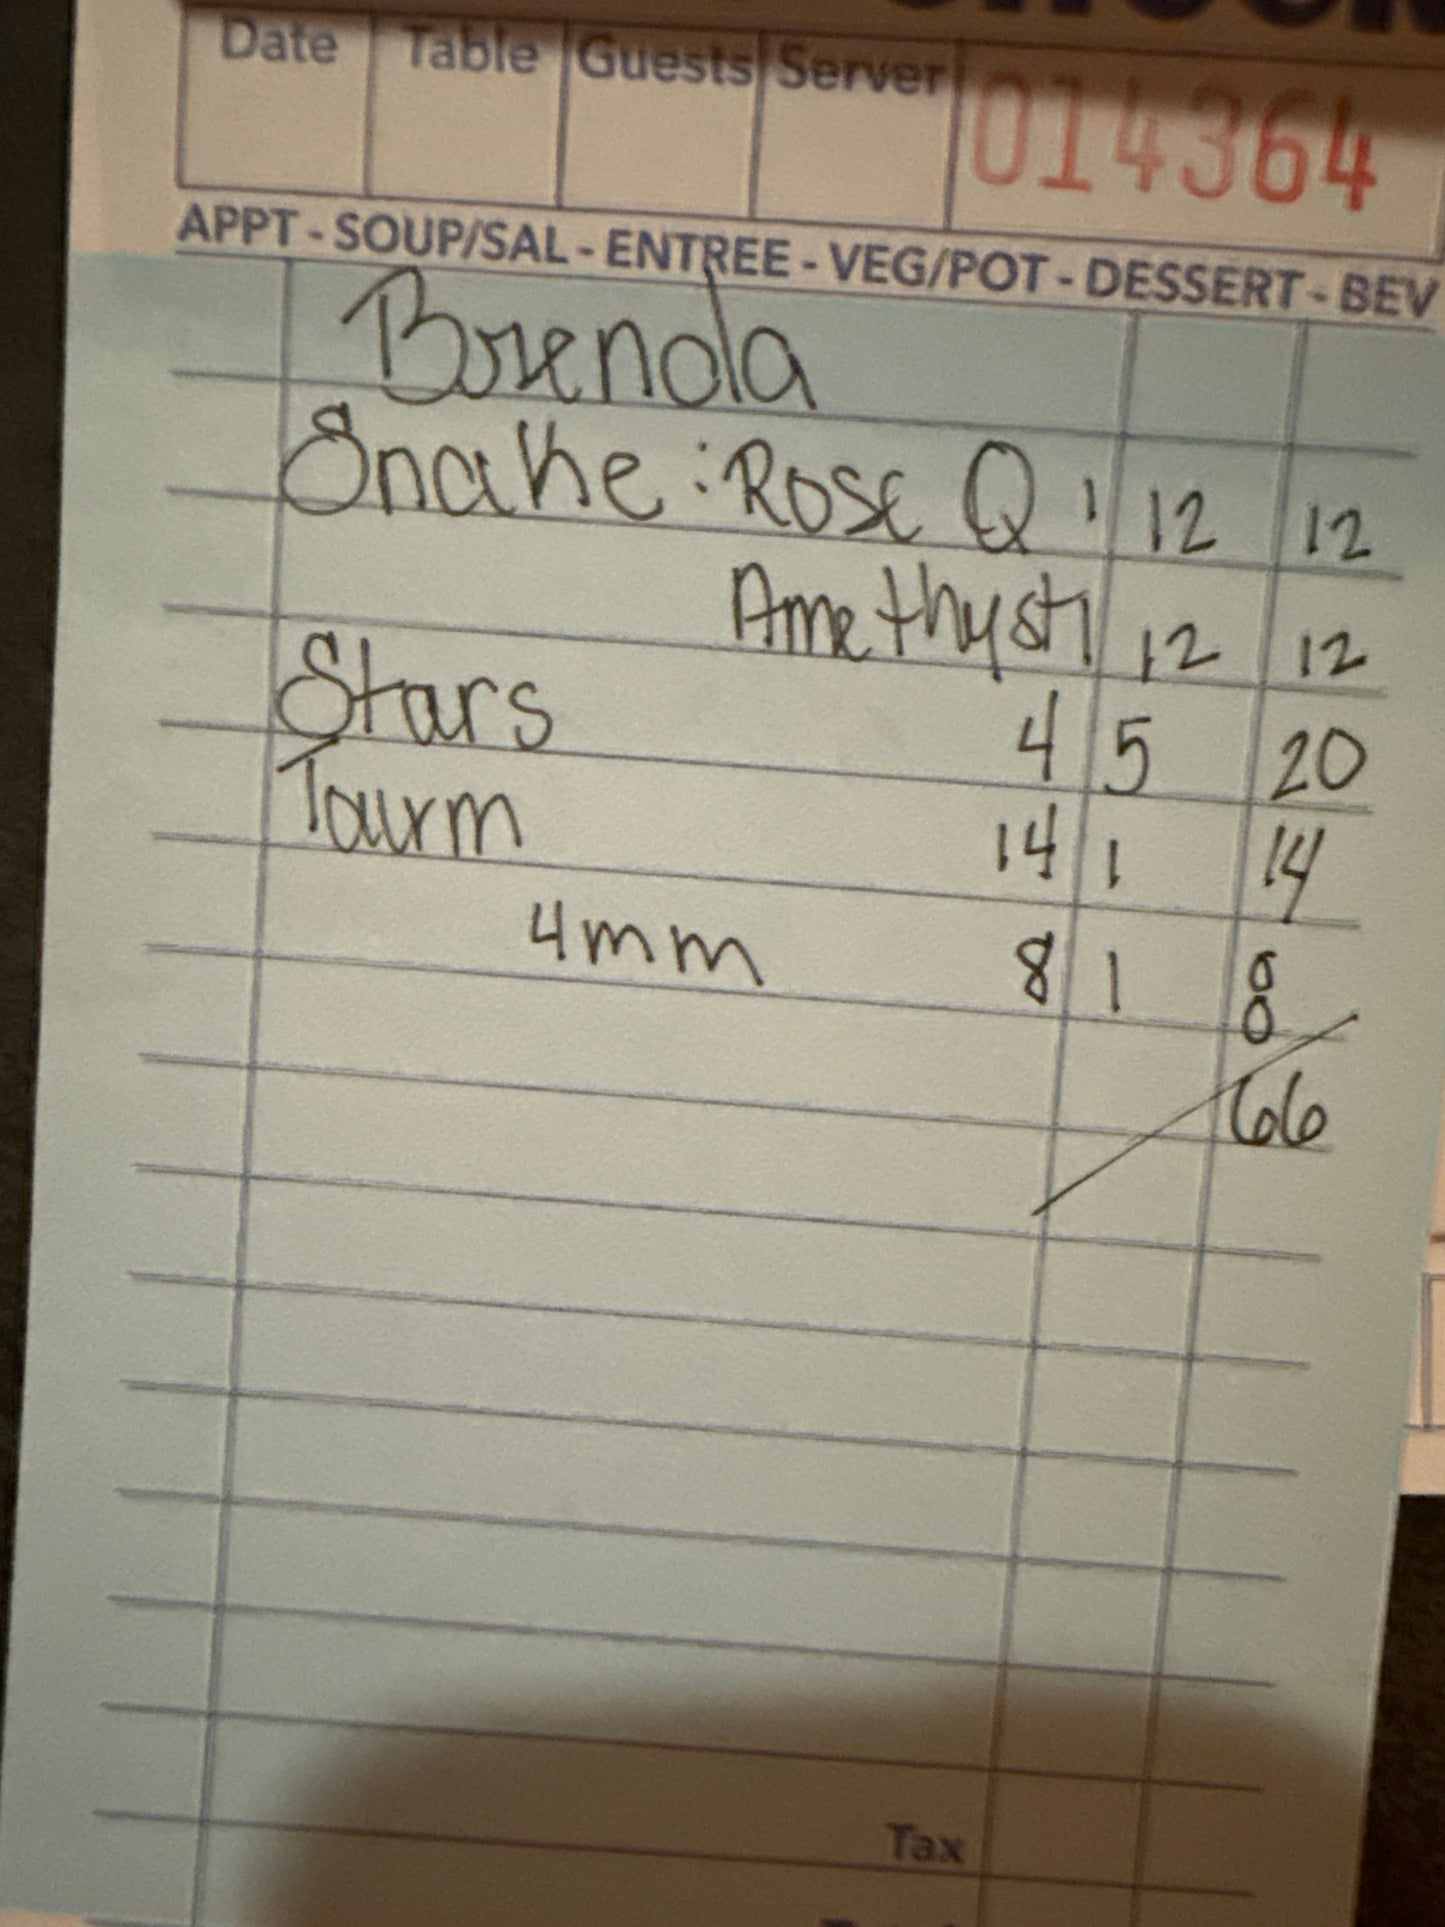 Date Table Guests Server 014364
APPT - SOUP/SAL - ENTREE - VEG/POT - DESSERT - BEV
Brenda
Snake : Rose Q 1 12 12
Amethyst 1 12 12
Stars 4 5 20
Tourm 14 1 14
4mm 8 1 8
66
Tax